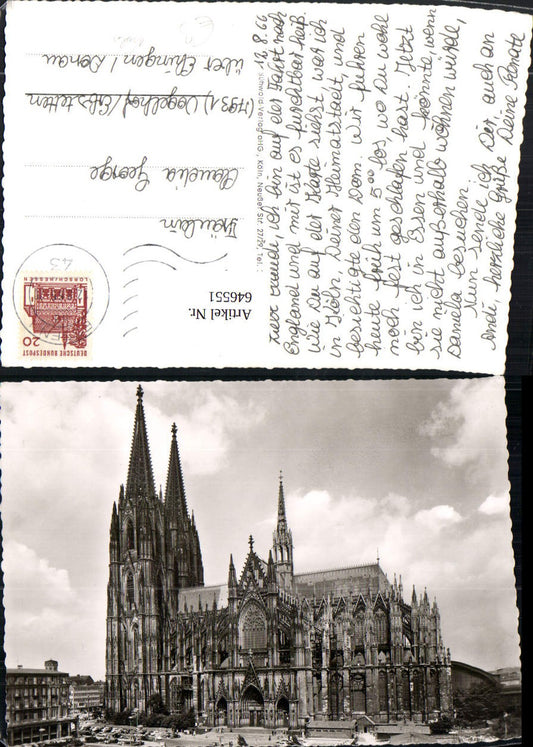 31.8.66
Liebe Claudi, ich bin auf der Fahrt nach
England und mir ist es furchtbar heiß.
Wie Du auf der Karte siehst war ich
in Köln, Deiner Heimatstadt, und
besichtigte den Dom. Wir fuhren
heute früh um 5⁰⁰ los, wo Du wohl
noch fest geschlafen hast. Jetzt
bin ich in Essen und könnte, wenn
sie nicht außerhalb wohnen würde,
Daniela besuchen.
Nun sende ich Dir auch an
Andi herzliche Grüße Deine Renate
Schwald-Verlag oHG, Köln, Neusser Str. 27/29, Tel.:
Fräulein
Claudia George
(7931) Vogelhof/Erbstetten
über Ehingen/Donau
DEUTSCHE BUNDESPOST
20
LORSCH/HESSEN
43
Artikel Nr.
646551